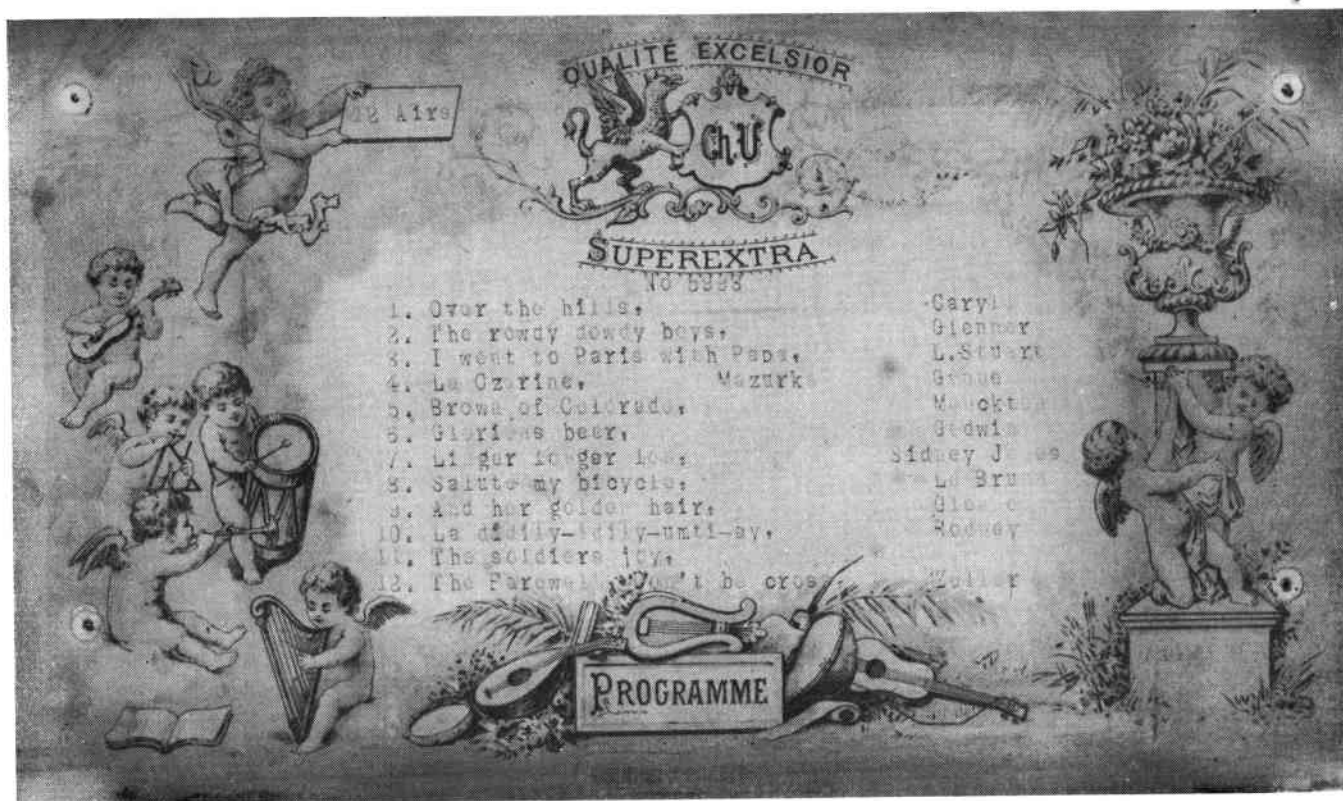 12 Airs
QUALITÉ EXCELSIOR
Ch.U
SUPEREXTRA
No
1. Over the hills, Caryl
2. The rowdy dowdy boys, Glenner
3. I went to Paris with Papa, L.Stuart
4. La Czarine, Mazurka
5. Brown of Colorado, Monckton
6. Glorious beer, Godwin
7. Linger longer loo, Sidney Jones
8. Salute my bicycle, Le Brunn
9. And her golden hair,
10. La didily-idily-umti-ay, Rodney
11. The soldiers joy,
12. The Farewell Don't be cross, Zeller
PROGRAMME